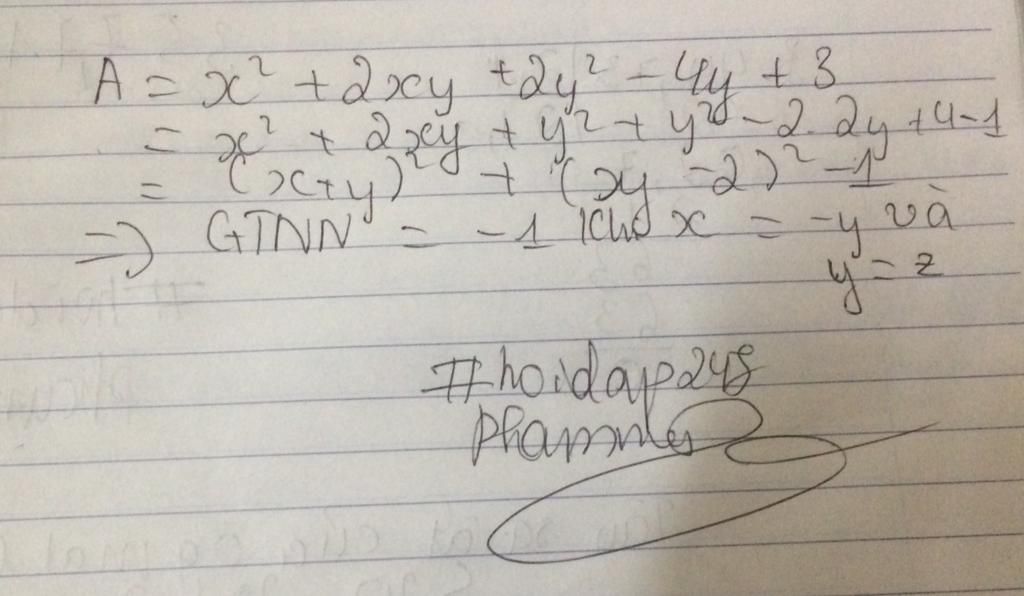 A = x² + 2xy + 2y² - 4y + 3
= x² + 2xy + y² + y² - 2. 2y + 4 - 1
= (x+y)² + (xy - 2)² - 1
=> GTNN = -1 khi x = -y và
y = z
#hoidap248